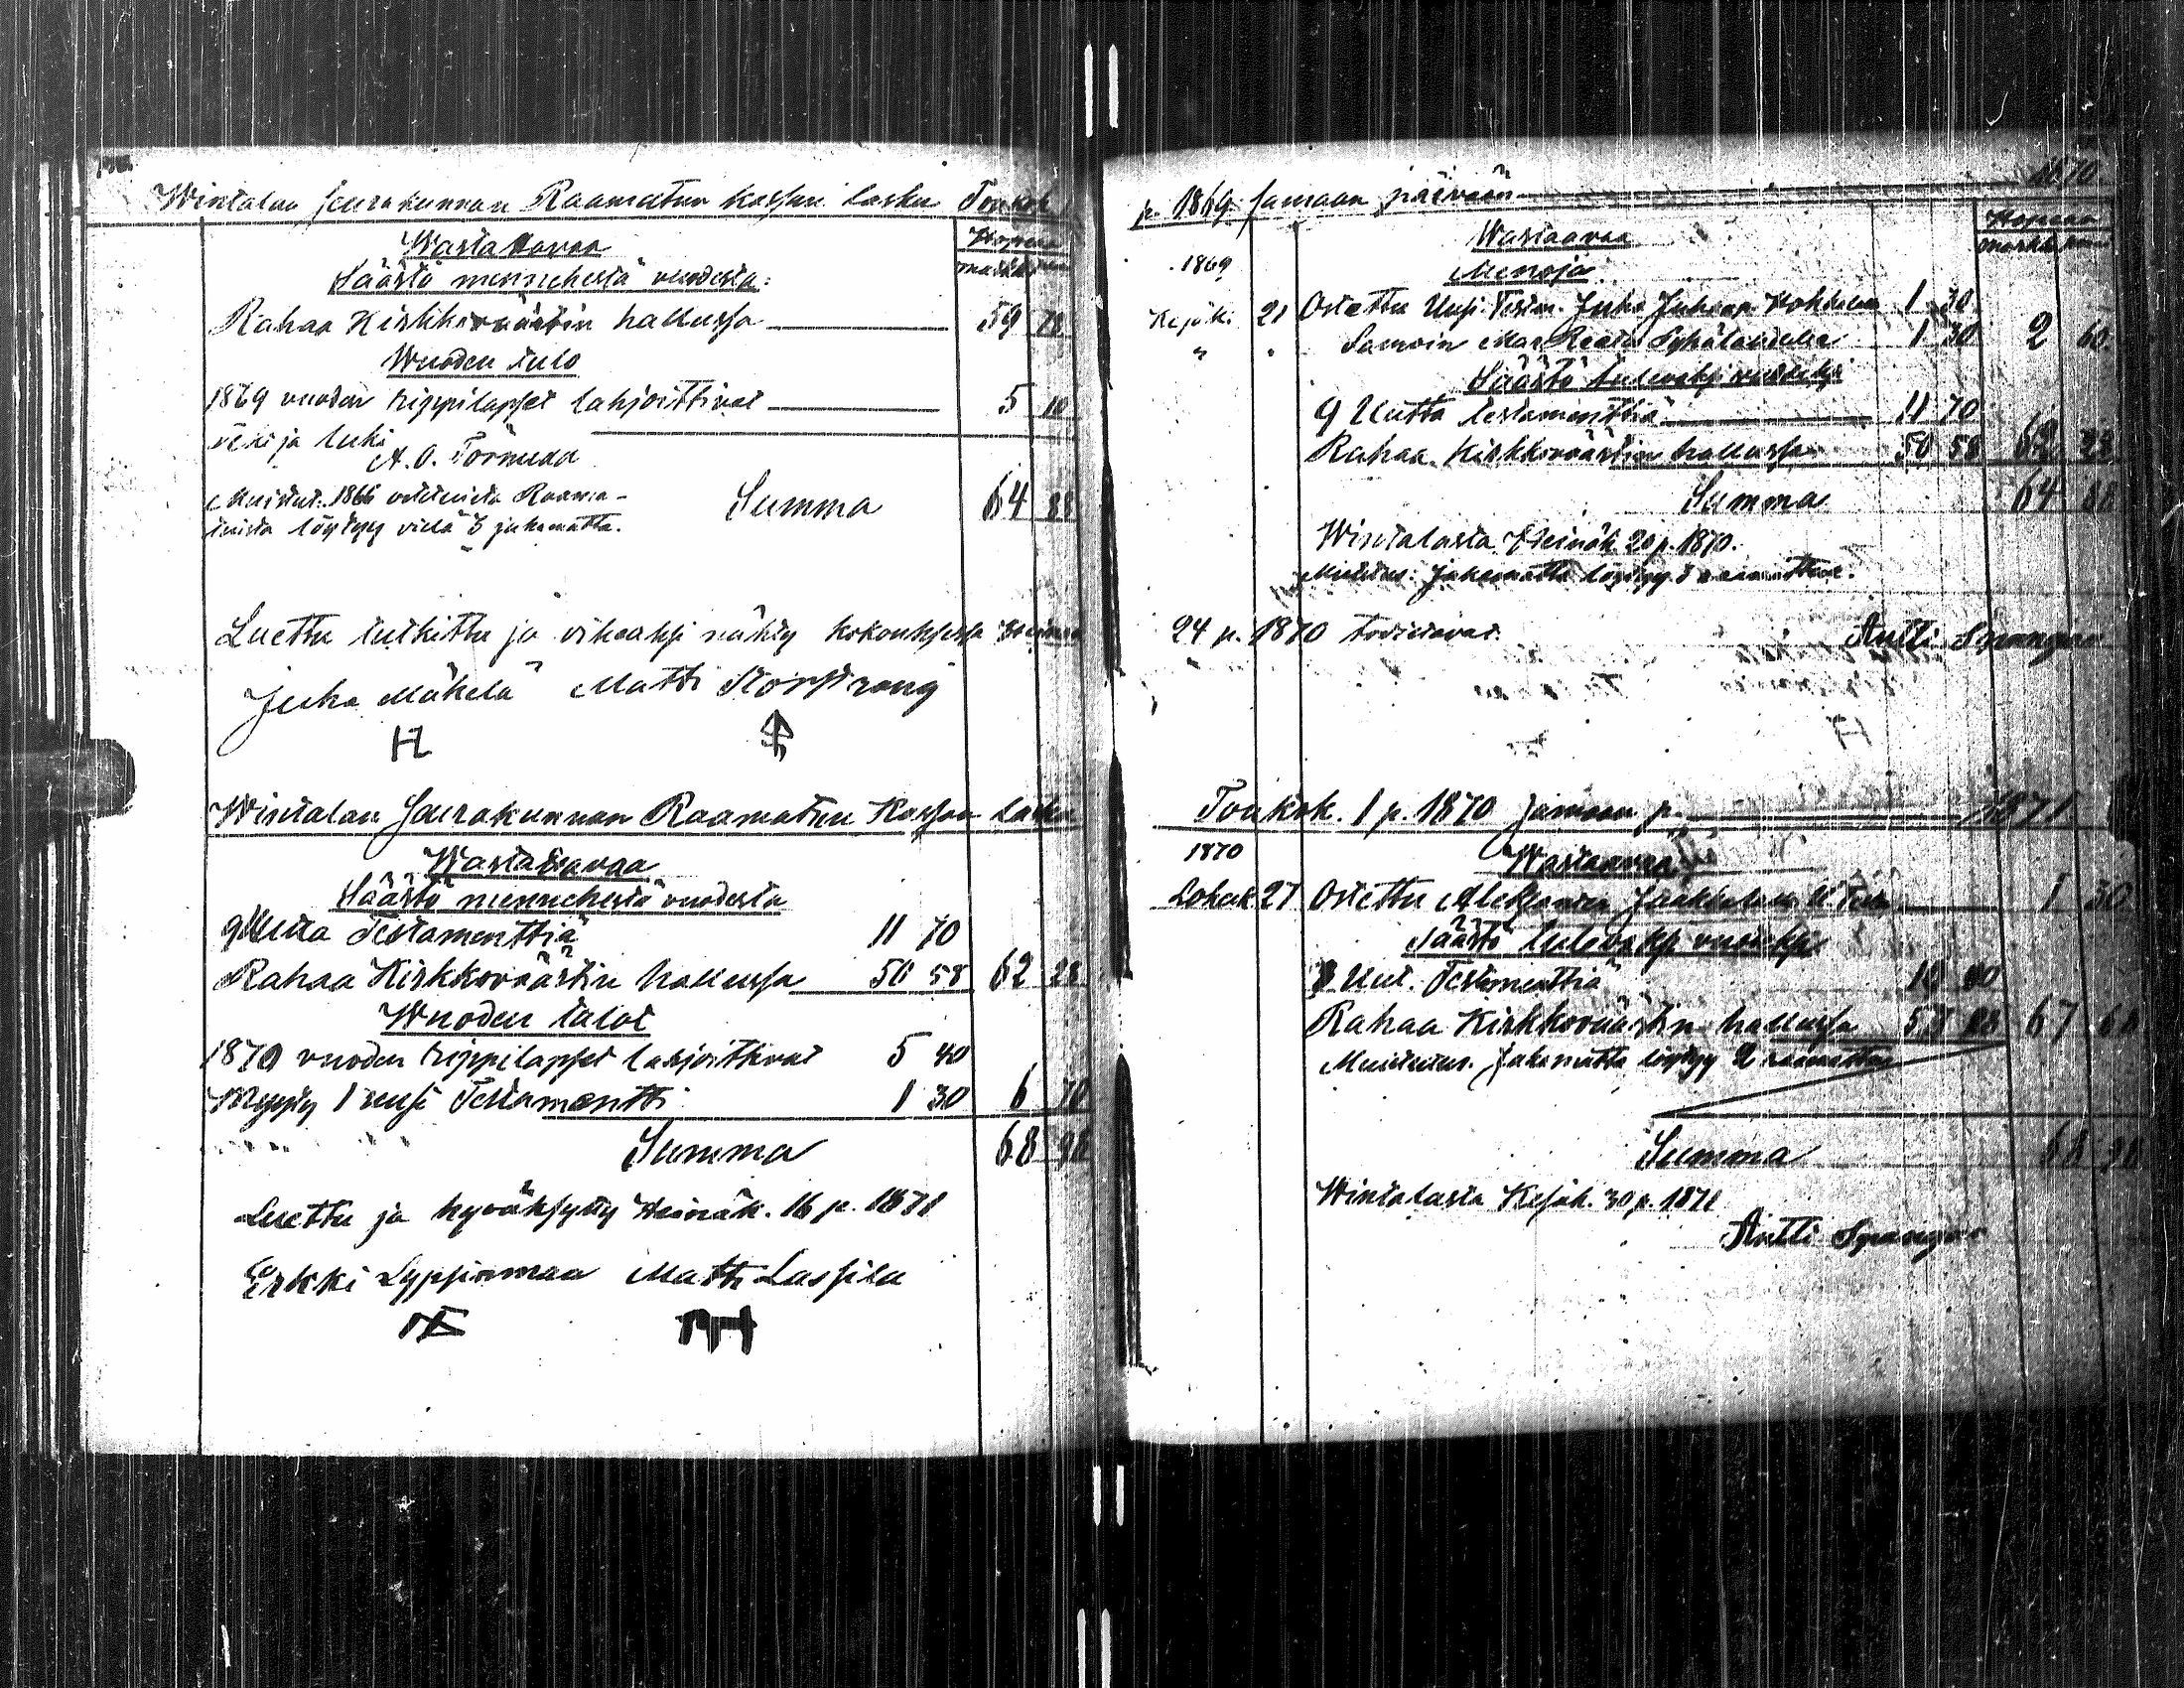 Wintalan seurakunnan Raamatun kassan lasku Toukok. 1
Wastattavaa
Hopeaa
Säästö mennehestä vuodesta:
markk.
Rahaa Kirkkoväärtin hallussa 59 78
Wuoden tulo
1869 vuoden rippilapset lahjoittivat 5 10
veti ja luki
A. O. Törnudd
Muistut. 1866 ostetuista Raama-
tuista löytyy vielä 3 jakamatta.
Summa 64 88
Luettu tutkittu ja oikeaksi nähty kokouksessa Heinäk.
Juho Mäkelä Matti Storstrang
Wintalan Seurakunnan Raamatun Kassan Lasku
Wastattavaa
Säästö mennehestä vuodesta
9 Uutta Testamenttiä 11 70
Rahaa Kirkkoväärtin hallussa 50 58 62 28
Wuoden tulot
1870 vuoden rippilapset lahjoittivat 5 40
Myyty 1 uusi Testamentti 1 30 6 70
Summa 68 98
Luettu ja hyväksytty Heinäk. 16 p. 1871
Erkki Lyppinmaa Matti Lassila
p. 1869 samaan päivään 1870
Wastaavaa
Hopeaa
markk.
1869
Menoja
Kesäk. 21 Ostettu Uusi Testam. Juho Juhonp. 1 30
" " Samoin 1 30 2 60
Säästö tulevaksi vuodeksi
9 Uutta testamenttiä 11 70
Rahaa Kirkkoväärtin hallussa 50 58 62 28
Summa 64 88
Wintalasta Heinäk. 20 p. 1870.
Muistus: Jakamatta löytyy 3 raamattua.
24 p. 1870 todistavat. Antti Spangar
Toukok. 1 p. 1870 samaan p. 1871
1870
Wastaavaa
Lokak. 27 Ostettu 1 30
Säästö tulevaksi vuodeksi
8 Uut. Testamenttiä 10 40
Rahaa Kirkkoväärtin hallussa 57 28 67 68
Muistutus. Jakamatta löytyy 2 raamattua
Summa 68 98
Wintalasta Kesäk. 30 p. 1871
Antti Spangar